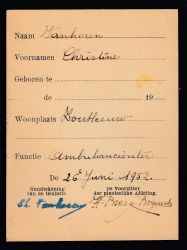 Naam Vanhoren
Voornamen Christine
Geboren te
de 19
Woonplaats Zoutleeuw
Functie Ambulancierster
De 26e Juni 1952.
Handtekening van de titularis
De Voorzitter der plaatselijke Afdeling,
Ch. Vanhoren